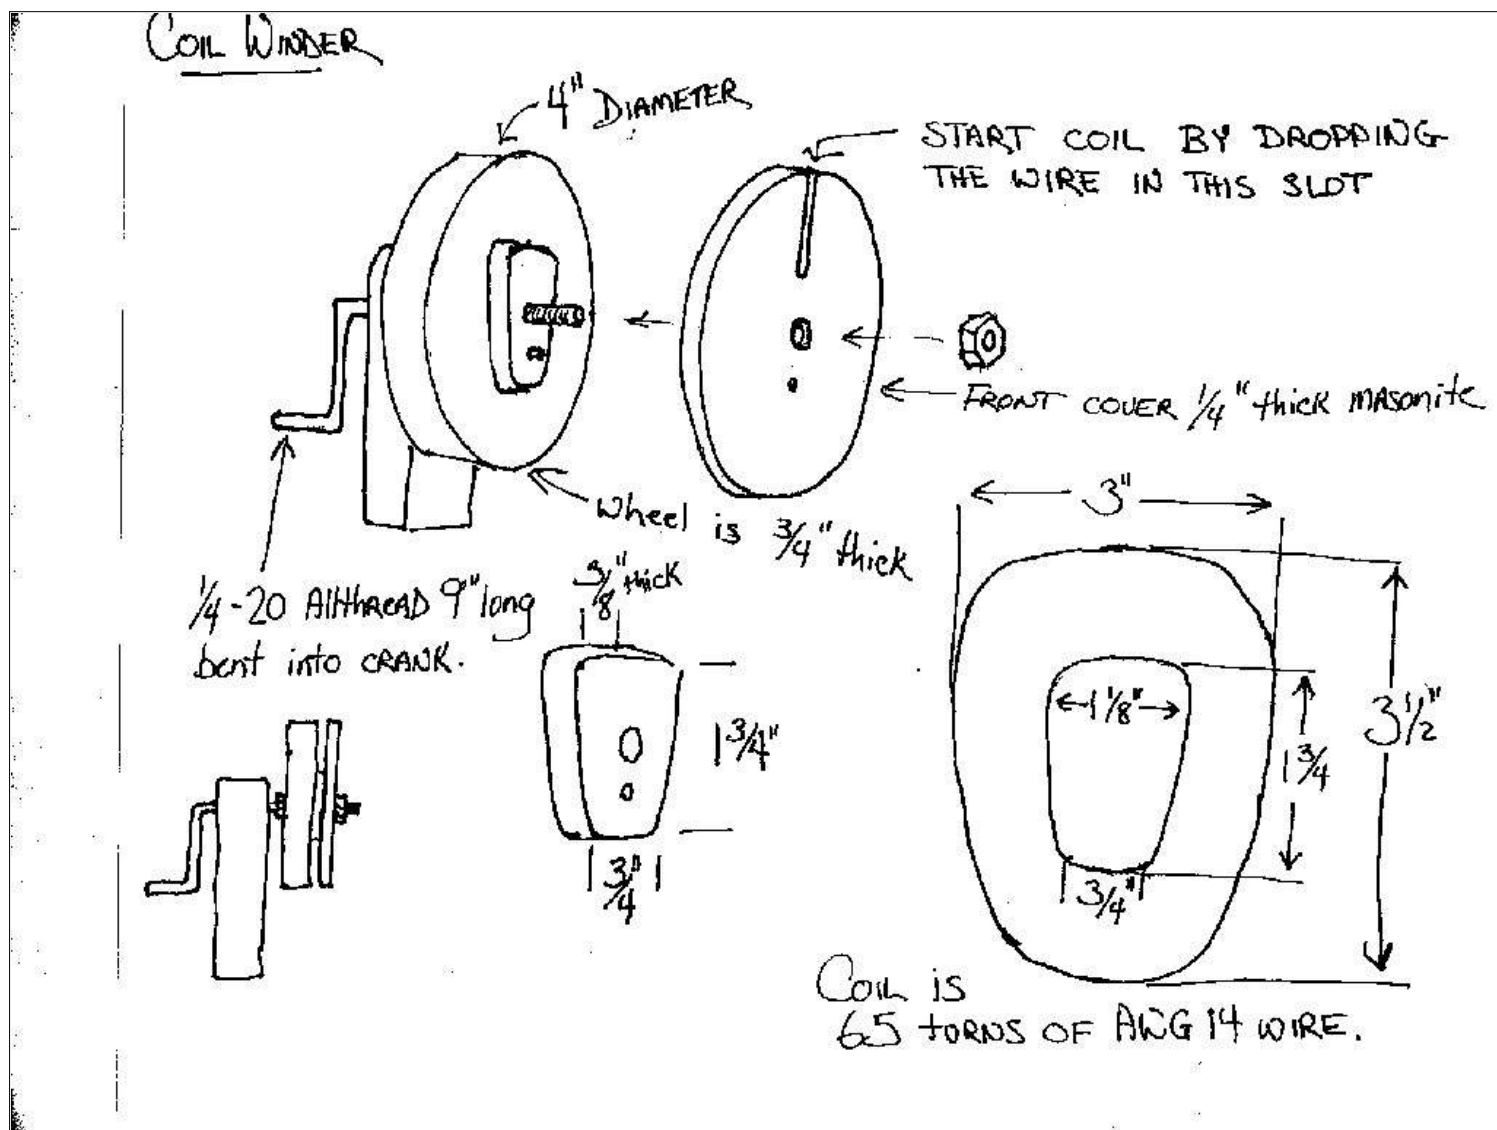 COIL WINDER
4" DIAMETER
START COIL BY DROPPING
THE WIRE IN THIS SLOT
FRONT COVER 1/4" thick masonite
Wheel is 3/4" thick
1/4-20 Allthread 9" long
bent into CRANK.
3/8" thick
1 3/4"
3/4"
3"
1 1/8"
3 1/2"
1 3/4
3/4"
COIL is
65 turns OF AWG 14 WIRE.